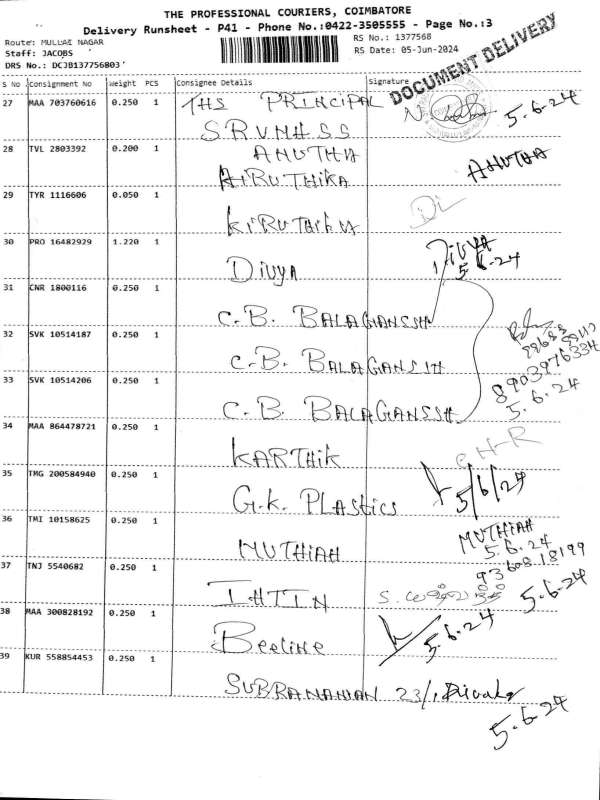 THE PROFESSIONAL COURIERS, COIMBATORE
Delivery Runsheet - P41 - Phone No.:0422-3505555 - Page No.:3
Route: MULLAE NAGAR
RS No.: 1377568
Staff: JACOBS
RS Date: 05-Jun-2024
DRS No.: DCJB137756803
DOCUMENT DELIVERY
S No Consignment No Weight PCS Consignee Details Signature
27 MAA 703760616 0.250 1 THS PRINCIPAL 5.6.24
SRVMHSS
28 TVL 2803392 0.200 1 ANUTHA ANUTHA
KIRUTHIKA
29 TYR 1116606 0.050 1
KIRUTHIKA
30 PRO 16482929 1.220 1 Divya DIVYA
5.6.24
31 CNR 1800116 0.250 1
C.B. BALAGANSSH
32 SVK 10514187 0.250 1
C.B. BALAGANSIH
8903976334
33 SVK 10514206 0.250 1 5.6.24
C.B. BALAGANSSH
34 MAA 864478721 0.250 1
KARTHIK
35 TMG 200584940 0.250 1 5/6/24
G.K. PLAStics
36 TMI 10158625 0.250 1 MUTHIAH
MUTHIAH 5.6.24
93608.18199
37 TNJ 5540682 0.250 1 5.6.24
38 MAA 300828192 0.250 1 5.6.24
Beeline
39 KUR 558854453 0.250 1
23/1
5.6.24